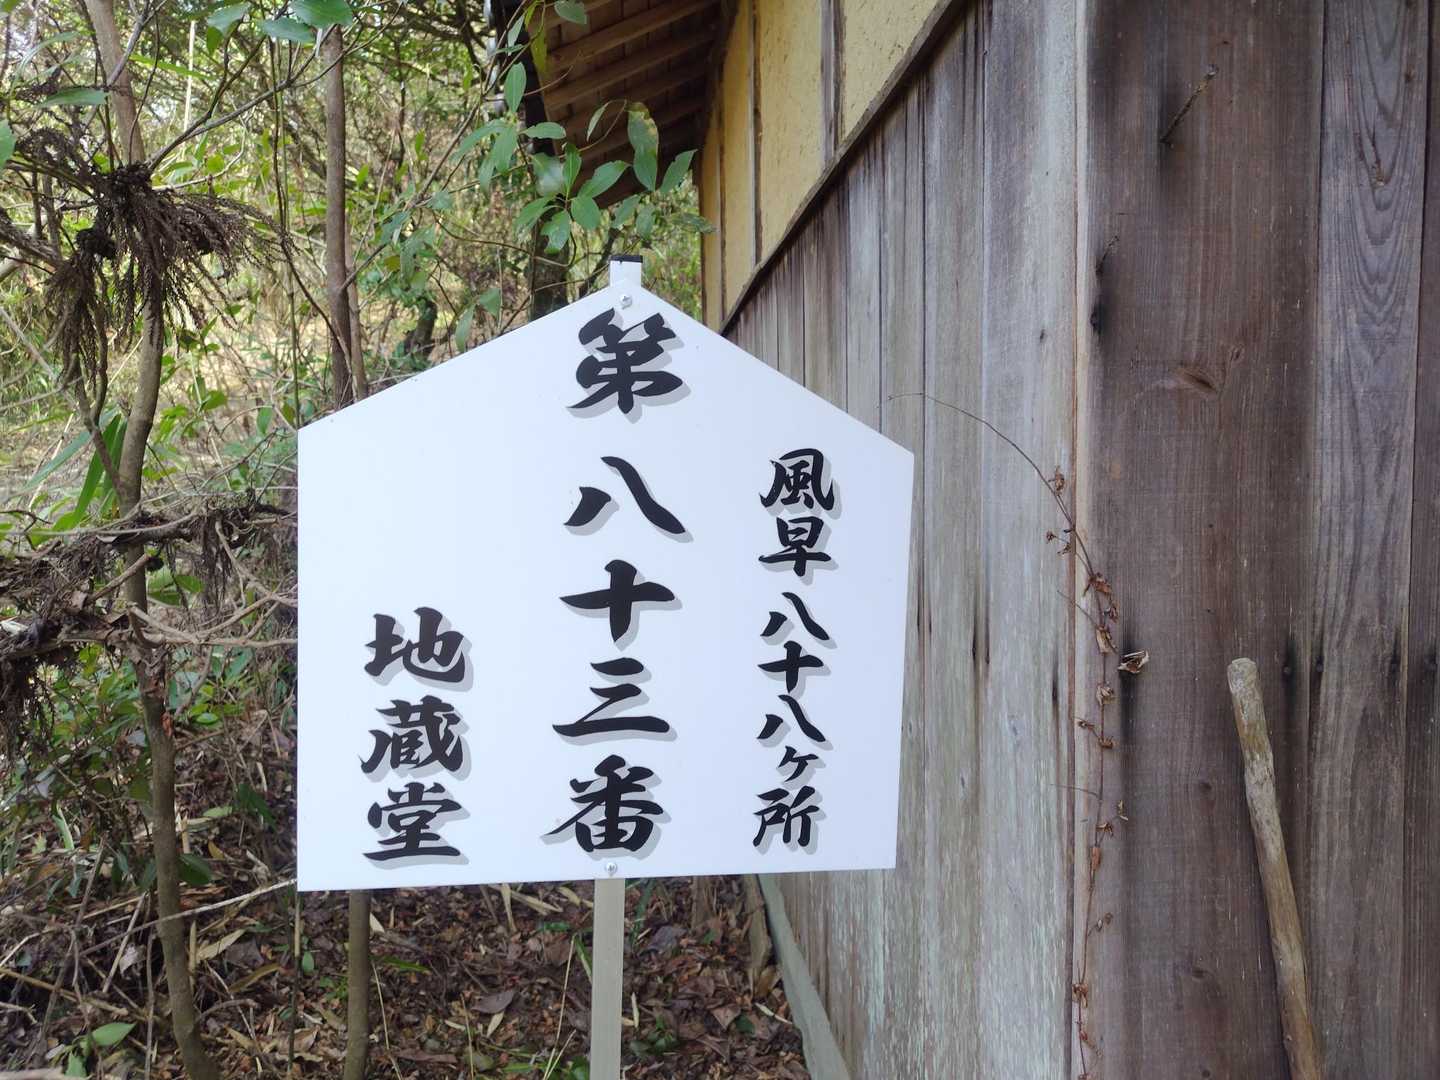 風早八十八ヶ所
第八十三番
地蔵堂